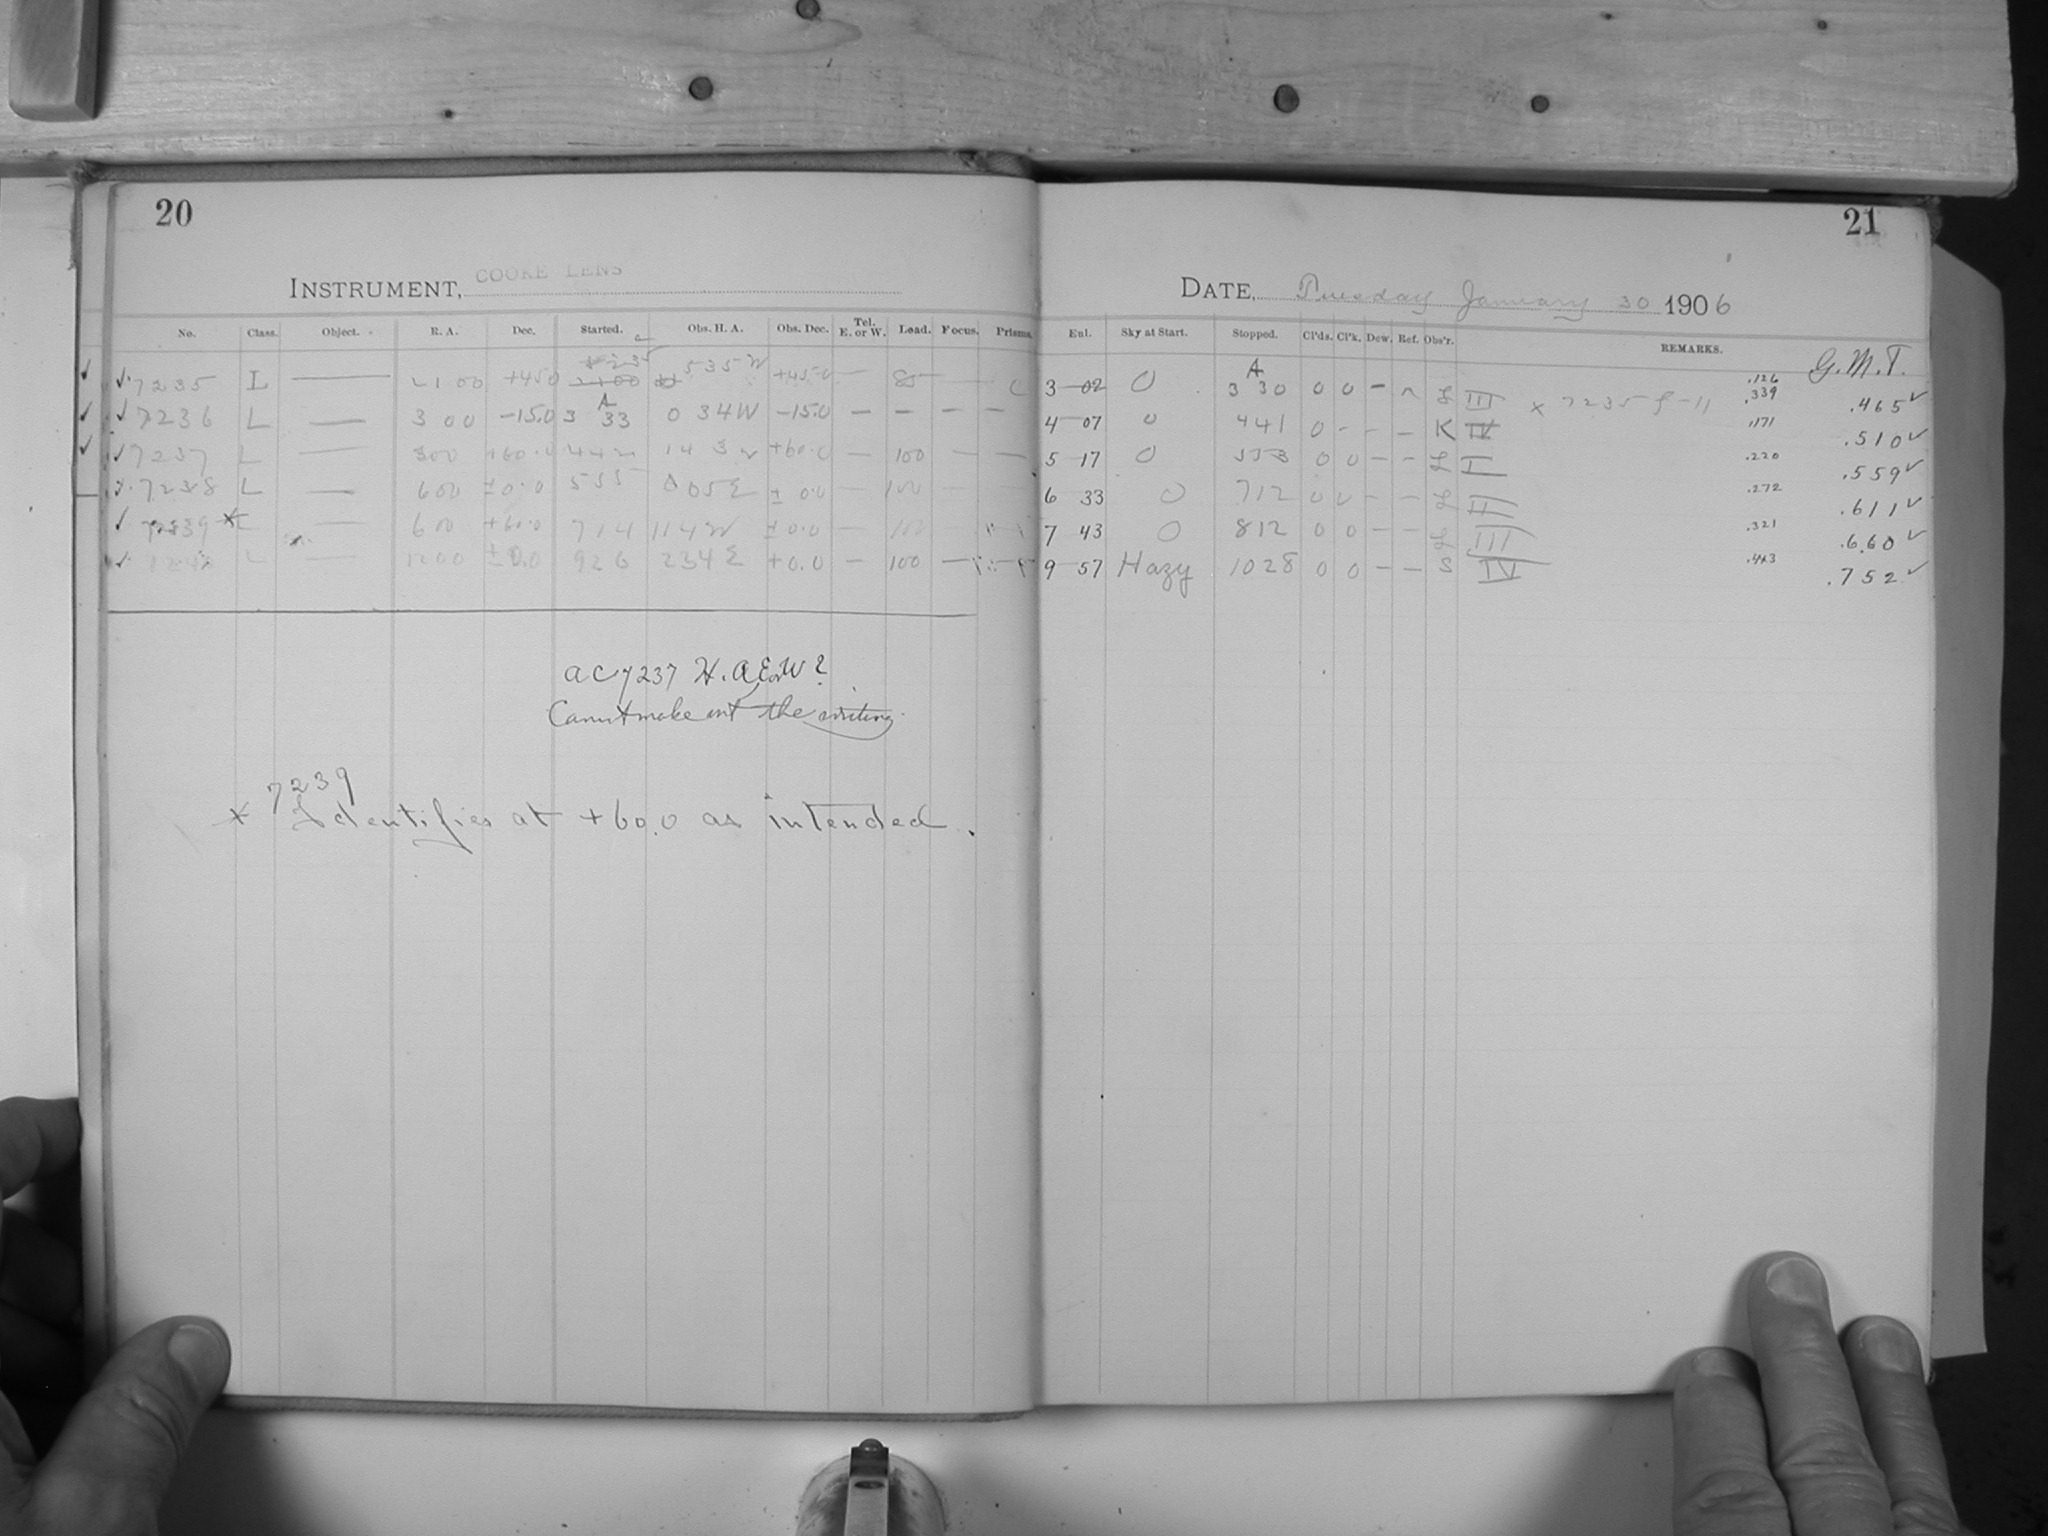 20
21
INSTRUMENT, COOKE LENS
DATE, Tuesday January 30 1906
No. Class. Object. R. A. Dec. Started. Obs. H. A. Obs. Dec. Tel. E. or W. Lead. Focus. Prisms.
Eul. Sky at Start. Stopped. Cl'ds. Cl'k. Dew. Ref. Obs'r. REMARKS. G.M.T.
✓ ✓ 7235 L — +45.0 5 35 W +45.0 — 3 02 0 A 3 30 0 0 – L III x 7235 .126 .339 .465 ✓
✓ ✓ 7236 L — 3 00 –15.0 A 3 33 0 34W –15.0 – – – – 4 07 0 4 41 0 - - – K IV .171 .510 ✓
✓ ✓ 7237 L — 300 +60.0 442 +60.0 — 100 — — 5 17 0 553 0 0 – – L I .220 .559 ✓
7238 L — 600 ±0.0 555 0 05 E ± 0.0 — 100 — 6 33 0 712 0 0 – – L II .272 .611 ✓
✓ 7239 * L — 600 +60.0 714 114W ±0.0 — 100 7 43 0 812 0 0 – – L III .321 .660 ✓
L — 1200 ±0.0 926 234 E +0.0 — 100 — 9 57 Hazy 1028 0 0 – – S IV .752 ✓
AC 7237 H.A. E or W?
Cannot make out the writing.
7239
* Identifies at +60.0 as intended.